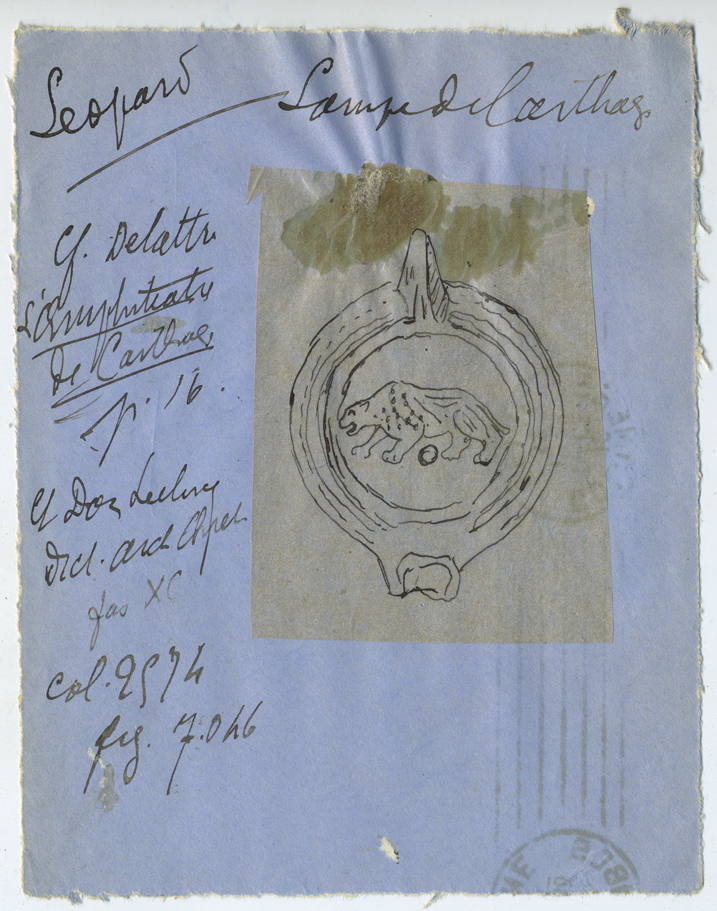 Leopard Lampe de Carthag
Cf. Delattre
L'amphitéatre
de Carthag
p. 16.
Cf Dom Leclerq
Dict. arch Chret.
fas XC
col. 2574
fig. 7.046